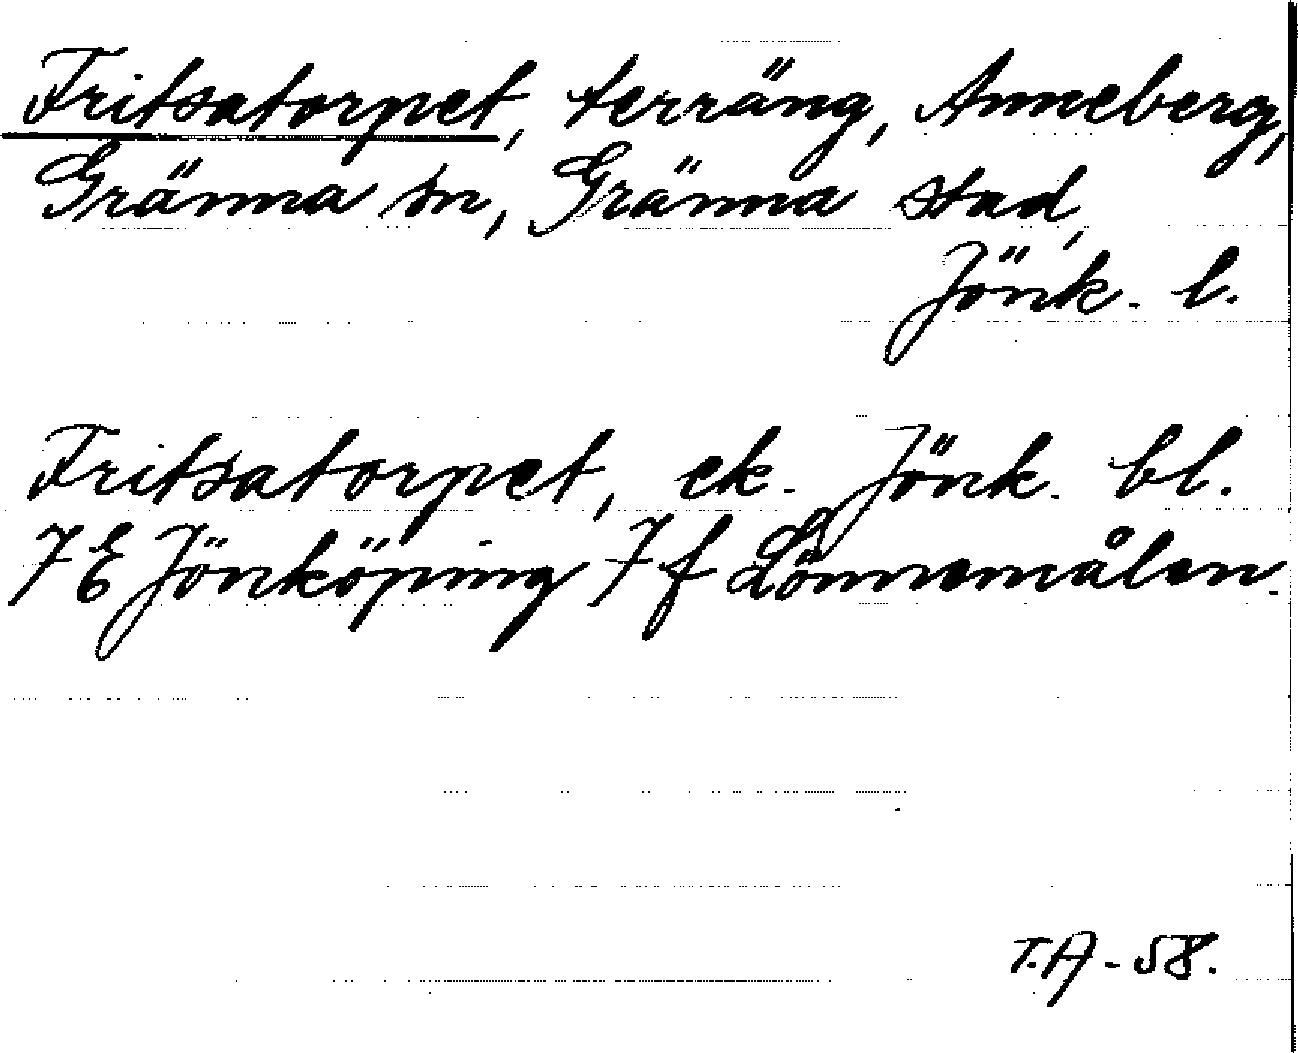 Fritsatorpet, terräng, Anneberg,
Gränna sn, Gränna stad,
Jönk. l.
Fritsatorpet, ek. Jönk. bl.
7 E Jönköping 7 f Lönnemålen.
T.A - 58.